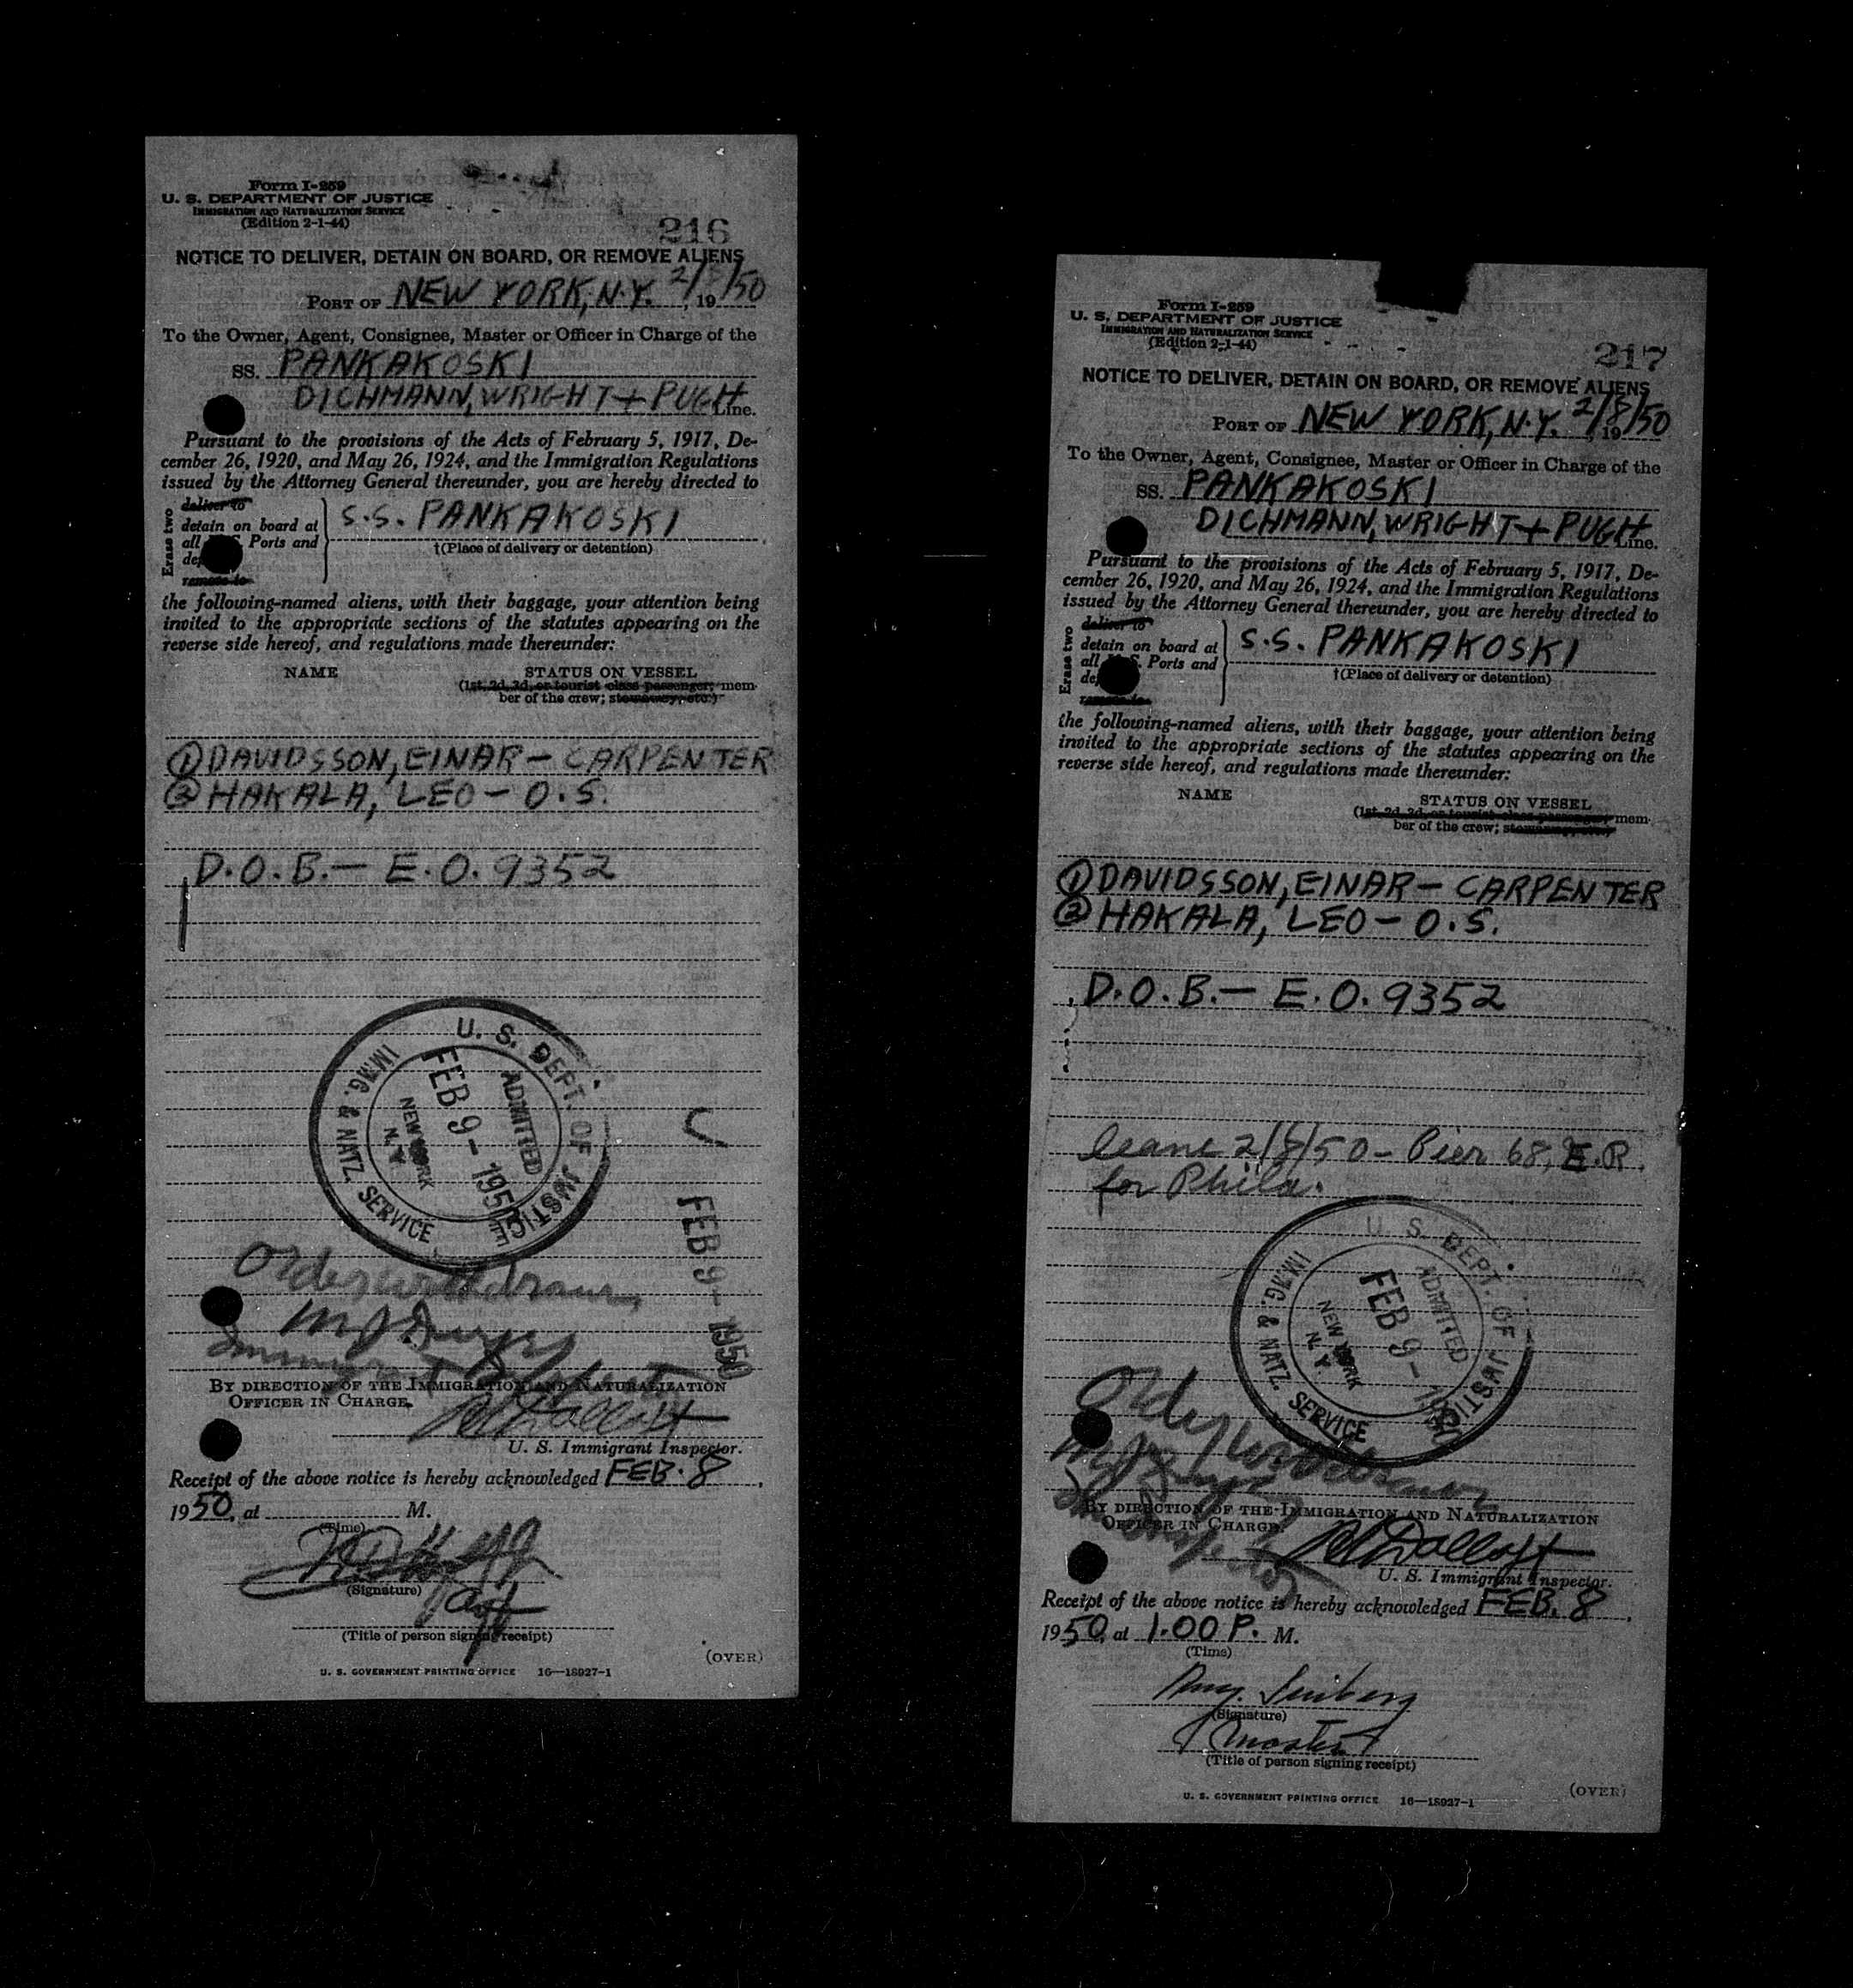 Form I-259
U. S. DEPARTMENT OF JUSTICE
IMMIGRATION AND NATURALIZATION SERVICE
(Edition 2-1-44)
216
NOTICE TO DELIVER, DETAIN ON BOARD, OR REMOVE ALIENS
PORT OF NEW YORK, N.Y. 2/8/50, 19
To the Owner, Agent, Consignee, Master or Officer in Charge of the
SS. PANKAKOSKI
DICHMANN, WRIGHT + PUGH Line.
Pursuant to the provisions of the Acts of February 5, 1917, De-
cember 26, 1920, and May 26, 1924, and the Immigration Regulations
issued by the Attorney General thereunder, you are hereby directed to
Erase two
deliver to
detain on board at
all U. S. Ports and
remove to
S.S. PANKAKOSKI
†(Place of delivery or detention)
the following-named aliens, with their baggage, your attention being
invited to the appropriate sections of the statutes appearing on the
reverse side hereof, and regulations made thereunder:
NAME STATUS ON VESSEL
(1st, 2d, 3d, or tourist class passenger; mem-
ber of the crew; stowaway; etc.)
① DAVIDSSON, EINAR - CARPENTER
② HAKALA, LEO - O.S.
D.O.B. - E.O. 9352
U. S. DEPT. OF JUSTICE
IMMG. & NATZ. SERVICE
ADMITTED
FEB 9 - 1950
NEW YORK
N. Y.
FEB 9 - 1950
Order withdrawn
BY DIRECTION OF THE IMMIGRATION AND NATURALIZATION
OFFICER IN CHARGE.
U. S. Immigrant Inspector.
Receipt of the above notice is hereby acknowledged FEB. 8,
1950, at M.
(Time)
(Signature)
(Title of person signing receipt)
(OVER)
U. S. GOVERNMENT PRINTING OFFICE 16—18927-1
Form I-259
U. S. DEPARTMENT OF JUSTICE
IMMIGRATION AND NATURALIZATION SERVICE
(Edition 2-1-44)
217
NOTICE TO DELIVER, DETAIN ON BOARD, OR REMOVE ALIENS
PORT OF NEW YORK, N.Y. 2/8/50, 19
To the Owner, Agent, Consignee, Master or Officer in Charge of the
SS. PANKAKOSKI
DICHMANN, WRIGHT + PUGH Line.
Pursuant to the provisions of the Acts of February 5, 1917, De-
cember 26, 1920, and May 26, 1924, and the Immigration Regulations
issued by the Attorney General thereunder, you are hereby directed to
Erase two
deliver to
detain on board at
all U. S. Ports and
remove to
S.S. PANKAKOSKI
†(Place of delivery or detention)
the following-named aliens, with their baggage, your attention being
invited to the appropriate sections of the statutes appearing on the
reverse side hereof, and regulations made thereunder:
NAME STATUS ON VESSEL
(1st, 2d, 3d, or tourist class passenger; mem-
ber of the crew; stowaway; etc.)
① DAVIDSSON, EINAR - CARPENTER
② HAKALA, LEO - O.S.
D.O.B. - E.O. 9352
leave 2/8/50 - Pier 68, E.R.
for Phila.
U. S. DEPT. OF JUSTICE
IMMG. & NATZ. SERVICE
ADMITTED
FEB 9 - 1950
NEW YORK
N. Y.
Order withdrawn
BY DIRECTION OF THE IMMIGRATION AND NATURALIZATION
OFFICER IN CHARGE.
U. S. Immigrant Inspector.
Receipt of the above notice is hereby acknowledged FEB. 8,
1950, at 1.00 P. M.
(Time)
(Signature)
Master
(Title of person signing receipt)
(OVER)
U. S. GOVERNMENT PRINTING OFFICE 16—18927-1